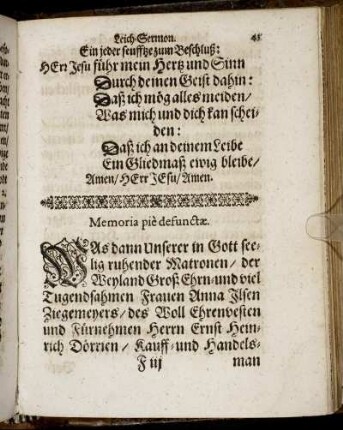 Leich-Sermon. 41
Ein jeder seufftze zum Beschluß:
HErr Jesu führ mein Hertz und Sinn
Durch deinen Geist dahin:
Daß ich mög alles meiden/
Was mich und dich kan schei-
den:
Daß ich an deinem Leibe
Ein Gliedmaß ewig bleibe/
Amen/ HErr JEsu/ Amen.
Memoria piè defunctæ.
WAs dann Unserer in Gott see-
lig ruhender Matronen/ der
Weyland Groß Ehrn- und viel
Tugendsahmen Frauen Anna Ilsen
Ziegemeyers/ des Woll Ehrenvesten
und Fürnehmen Herrn Ernst Hein-
rich Dörrien/ Kauff- und Handels-
F iij man